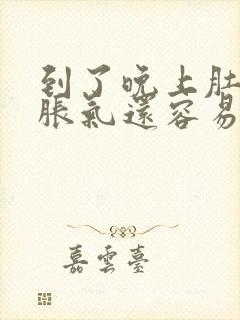 到了晚上肚
脹氣還容易
嘉雲臺